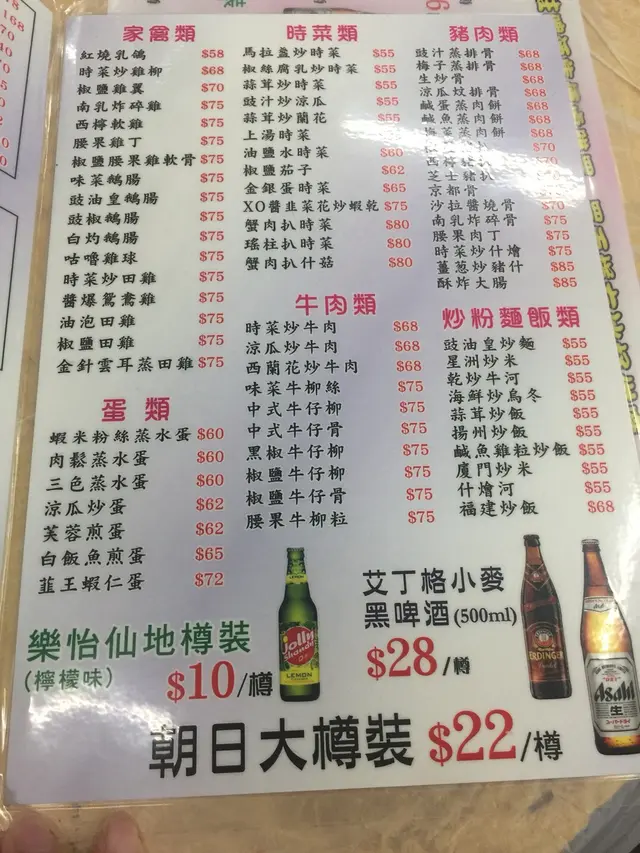 家禽類
紅燒乳鴿 $58
時菜炒雞柳 $68
椒鹽雞翼 $70
南乳炸碎雞 $75
西檸軟雞 $75
腰果雞丁 $75
椒鹽腰果雞軟骨 $75
味菜鵝腸 $75
豉油皇鵝腸 $75
豉椒鵝腸 $75
白灼鵝腸 $75
咕嚕雞球 $75
時菜炒田雞 $75
醬爆鴛鴦雞 $75
油泡田雞 $75
椒鹽田雞 $75
金針雲耳蒸田雞 $75
蛋類
蝦米粉絲蒸水蛋 $60
肉鬆蒸水蛋 $60
三色蒸水蛋 $60
涼瓜炒蛋 $62
芙蓉煎蛋 $62
白飯魚煎蛋 $65
韮王蝦仁蛋 $72
時菜類
馬拉盞炒時菜 $55
椒絲腐乳炒時菜 $55
蒜茸炒時菜 $55
豉汁炒涼瓜 $55
蒜茸炒蘭花 $55
上湯時菜
油鹽水時菜 $60
椒鹽茄子 $62
金銀蛋時菜 $65
XO醬韭菜花炒蝦乾 $75
蟹肉扒時菜 $80
瑤柱扒時菜 $80
蟹肉扒什菇 $80
牛肉類
時菜炒牛肉 $68
涼瓜炒牛肉 $68
西蘭花炒牛肉 $68
味菜牛柳絲 $75
中式牛仔柳 $75
中式牛仔骨 $75
黑椒牛仔柳 $75
椒鹽牛仔柳 $75
椒鹽牛仔骨 $75
腰果牛柳粒 $75
豬肉類
豉汁蒸排骨 $68
梅子蒸排骨 $68
生炒骨 $68
涼瓜炆排骨 $68
鹹蛋蒸肉餅 $68
鹹魚蒸肉餅 $68
蒸肉餅 $68
$70
西檸 $70
芝士豬扒 $70
京都骨
沙拉醬燒骨 $70
南乳炸碎骨 $75
腰果肉丁 $75
時菜炒什燴 $75
薑葱炒豬什 $85
酥炸大腸 $85
炒粉麵飯類
豉油皇炒麵 $55
星洲炒米 $55
乾炒牛河 $55
海鮮炒烏冬 $55
蒜茸炒飯 $55
揚州炒飯 $55
鹹魚雞粒炒飯 $55
廈門炒米 $55
什燴河 $55
福建炒飯 $68
樂怡仙地樽裝
(檸檬味) $10/樽
LEMON
Jolly
Shandy
LEMON
艾丁格小麥
黑啤酒(500ml)
$28/樽
ERDINGER
Asahi
生
朝日大樽裝 $22/樽